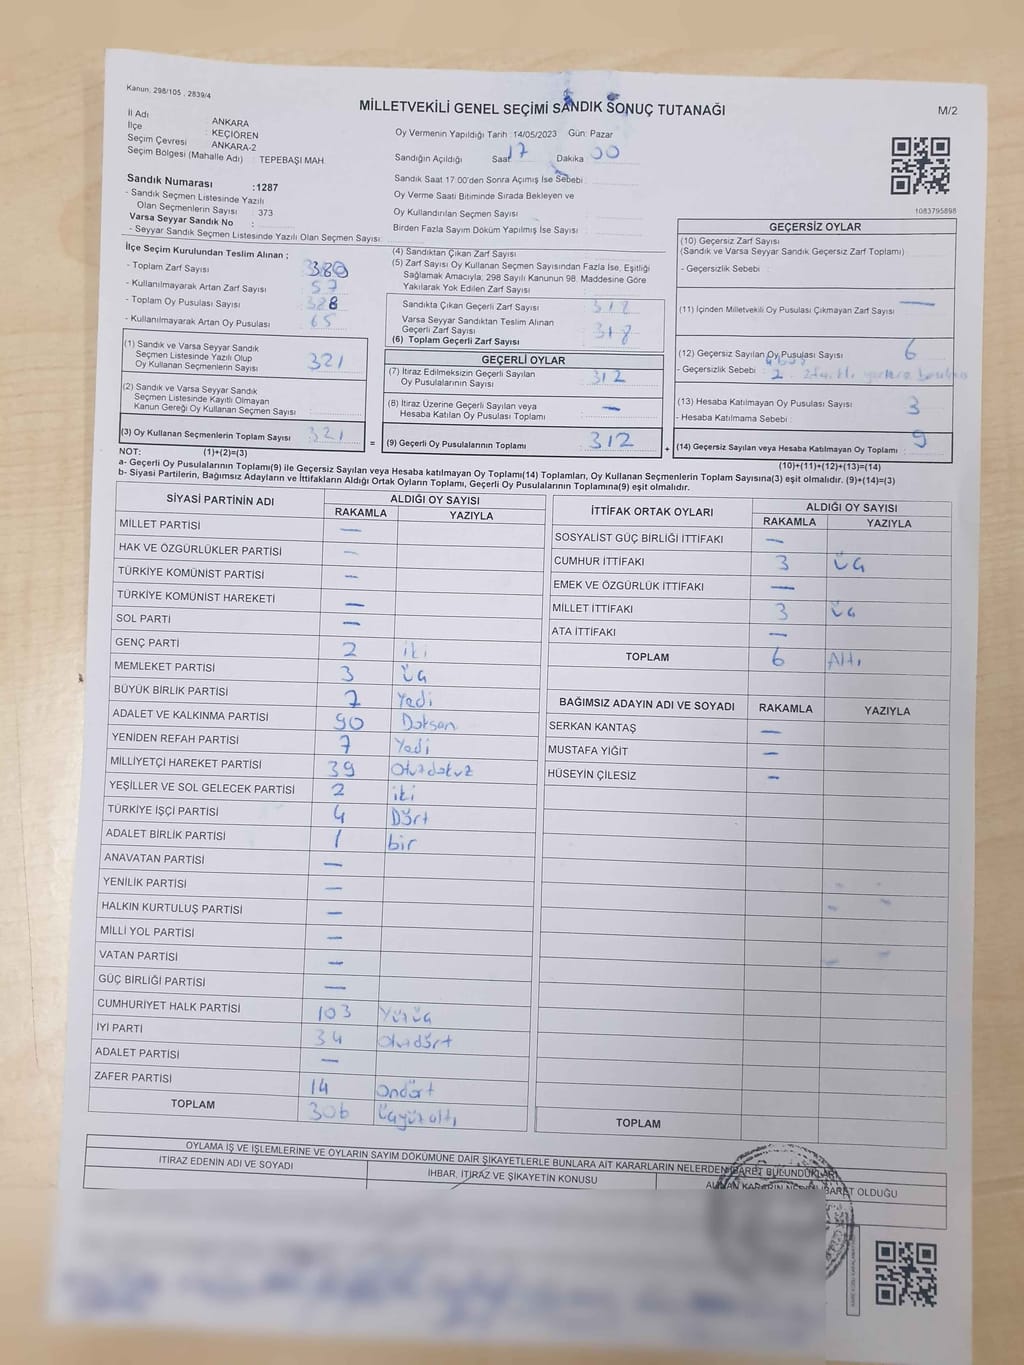 Kanun. 298/105 , 2839/4
MİLLETVEKİLİ GENEL SEÇİMİ SANDIK SONUÇ TUTANAĞI
M/2
İl Adı : ANKARA
İlçe : KEÇİÖREN
Seçim Çevresi : ANKARA-2
Seçim Bölgesi (Mahalle Adı) : TEPEBAŞI MAH
Oy Vermenin Yapıldığı Tarih :14/05/2023 Gün: Pazar
Sandığın Açıldığı Saat 17 Dakika 00
Sandık Saat 17:00'den Sonra Açımış İse Sebebi :
Oy Verme Saati Bitiminde Sırada Bekleyen ve
Oy Kullandırılan Seçmen Sayısı :
Birden Fazla Sayım Döküm Yapılmış İse Sayısı :
1083795898
Sandık Numarası :1287
- Sandık Seçmen Listesinde Yazılı
Olan Seçmenlerin Sayısı : 373
Varsa Seyyar Sandık No :
- Seyyar Sandık Seçmen Listesinde Yazılı Olan Seçmen Sayısı:
İlçe Seçim Kurulundan Teslim Alınan ;
- Toplam Zarf Sayısı :
- Kullanılmayarak Artan Zarf Sayısı : 57
- Toplam Oy Pusulası Sayısı :
- Kullanılmayarak Artan Oy Pusulası : 65
(1) Sandık ve Varsa Seyyar Sandık
Seçmen Listesinde Yazılı Olup
Oy Kullanan Seçmenlerin Sayısı : 321
(2) Sandık ve Varsa Seyyar Sandık
Seçmen Listesinde Kayıtlı Olmayan
Kanun Gereği Oy Kullanan Seçmen Sayısı :
(3) Oy Kullanan Seçmenlerin Toplam Sayısı : 321
(1)+(2)=(3)
(4) Sandıktan Çıkan Zarf Sayısı :
(5) Zarf Sayısı Oy Kullanan Seçmen Sayısından Fazla İse, Eşitliği
Sağlamak Amacıyla; 298 Sayılı Kanunun 98. Maddesine Göre
Yakılarak Yok Edilen Zarf Sayısı :
Sandıkta Çıkan Geçerli Zarf Sayısı :
Varsa Seyyar Sandıktan Teslim Alınan
Geçerli Zarf Sayısı :
(6) Toplam Geçerli Zarf Sayısı : 318
GEÇERLİ OYLAR
(7) İtiraz Edilmeksizin Geçerli Sayılan
Oy Pusulalarının Sayısı : 312
(8) İtiraz Üzerine Geçerli Sayılan veya
Hesaba Katılan Oy Pusulası Toplamı : —
= (9) Geçerli Oy Pusulalarının Toplamı : 312 +
GEÇERSİZ OYLAR
(10) Geçersiz Zarf Sayısı
(Sandık ve Varsa Seyyar Sandık Geçersiz Zarf Toplamı) :
- Geçersizlik Sebebi :
(11) İçinden Milletvekili Oy Pusulası Çıkmayan Zarf Sayısı : —
(12) Geçersiz Sayılan Oy Pusulası Sayısı : 6
- Geçersizlik Sebebi :
(13) Hesaba Katılmayan Oy Pusulası Sayısı : 3
- Hesaba Katılmama Sebebi :
(14) Geçersiz Sayılan veya Hesaba Katılmayan Oy Toplamı : 9
(10)+(11)+(12)+(13)=(14)
NOT:
a- Geçerli Oy Pusulalarının Toplamı(9) ile Geçersiz Sayılan veya Hesaba katılmayan Oy Toplamı(14) Toplamları, Oy Kullanan Seçmenlerin Toplam Sayısına(3) eşit olmalıdır. (9)+(14)=(3)
b- Siyasi Partilerin, Bağımsız Adayların ve İttifakların Aldığı Ortak Oyların Toplamı, Geçerli Oy Pusulalarının Toplamına(9) eşit olmalıdır.
SİYASİ PARTİNİN ADI ALDIĞI OY SAYISI
RAKAMLA YAZIYLA
MİLLET PARTİSİ —
HAK VE ÖZGÜRLÜKLER PARTİSİ —
TÜRKİYE KOMÜNİST PARTİSİ —
TÜRKİYE KOMÜNİST HAREKETİ —
SOL PARTİ —
GENÇ PARTİ 2 iki
MEMLEKET PARTİSİ 3 üç
BÜYÜK BİRLİK PARTİSİ 7 Yedi
ADALET VE KALKINMA PARTİSİ 90 Doksan
YENİDEN REFAH PARTİSİ 7 Yedi
MİLLİYETÇİ HAREKET PARTİSİ 39 Otuzdokuz
YEŞİLLER VE SOL GELECEK PARTİSİ 2 iki
TÜRKİYE İŞÇİ PARTİSİ 4 Dört
ADALET BİRLİK PARTİSİ 1 bir
ANAVATAN PARTİSİ —
YENİLİK PARTİSİ —
HALKIN KURTULUŞ PARTİSİ —
MİLLİ YOL PARTİSİ —
VATAN PARTİSİ —
GÜÇ BİRLİĞİ PARTİSİ —
CUMHURİYET HALK PARTİSİ 103 Yüzüç
İYİ PARTİ 34 Otuzdört
ADALET PARTİSİ —
ZAFER PARTİSİ 14 Ondört
TOPLAM 306 üçyüzaltı
İTTİFAK ORTAK OYLARI ALDIĞI OY SAYISI
RAKAMLA YAZIYLA
SOSYALİST GÜÇ BİRLİĞİ İTTİFAKI —
CUMHUR İTTİFAKI 3 üç
EMEK VE ÖZGÜRLÜK İTTİFAKI —
MİLLET İTTİFAKI 3 üç
ATA İTTİFAKI —
TOPLAM 6 Altı
BAĞIMSIZ ADAYIN ADI VE SOYADI RAKAMLA YAZIYLA
SERKAN KANTAŞ —
MUSTAFA YİĞİT —
HÜSEYİN ÇİLESİZ —
TOPLAM
OYLAMA İŞ VE İŞLEMLERİNE VE OYLARIN SAYIM DÖKÜMÜNE DAİR ŞİKAYETLERLE BUNLARA AİT KARARLARIN NELERDEN İBARET BULUNDUKLARI
İTİRAZ EDENİN ADI VE SOYADI İHBAR, İTİRAZ VE ŞİKAYETİN KONUSU ALINAN KARARIN NEDEN İBARET OLDUĞU